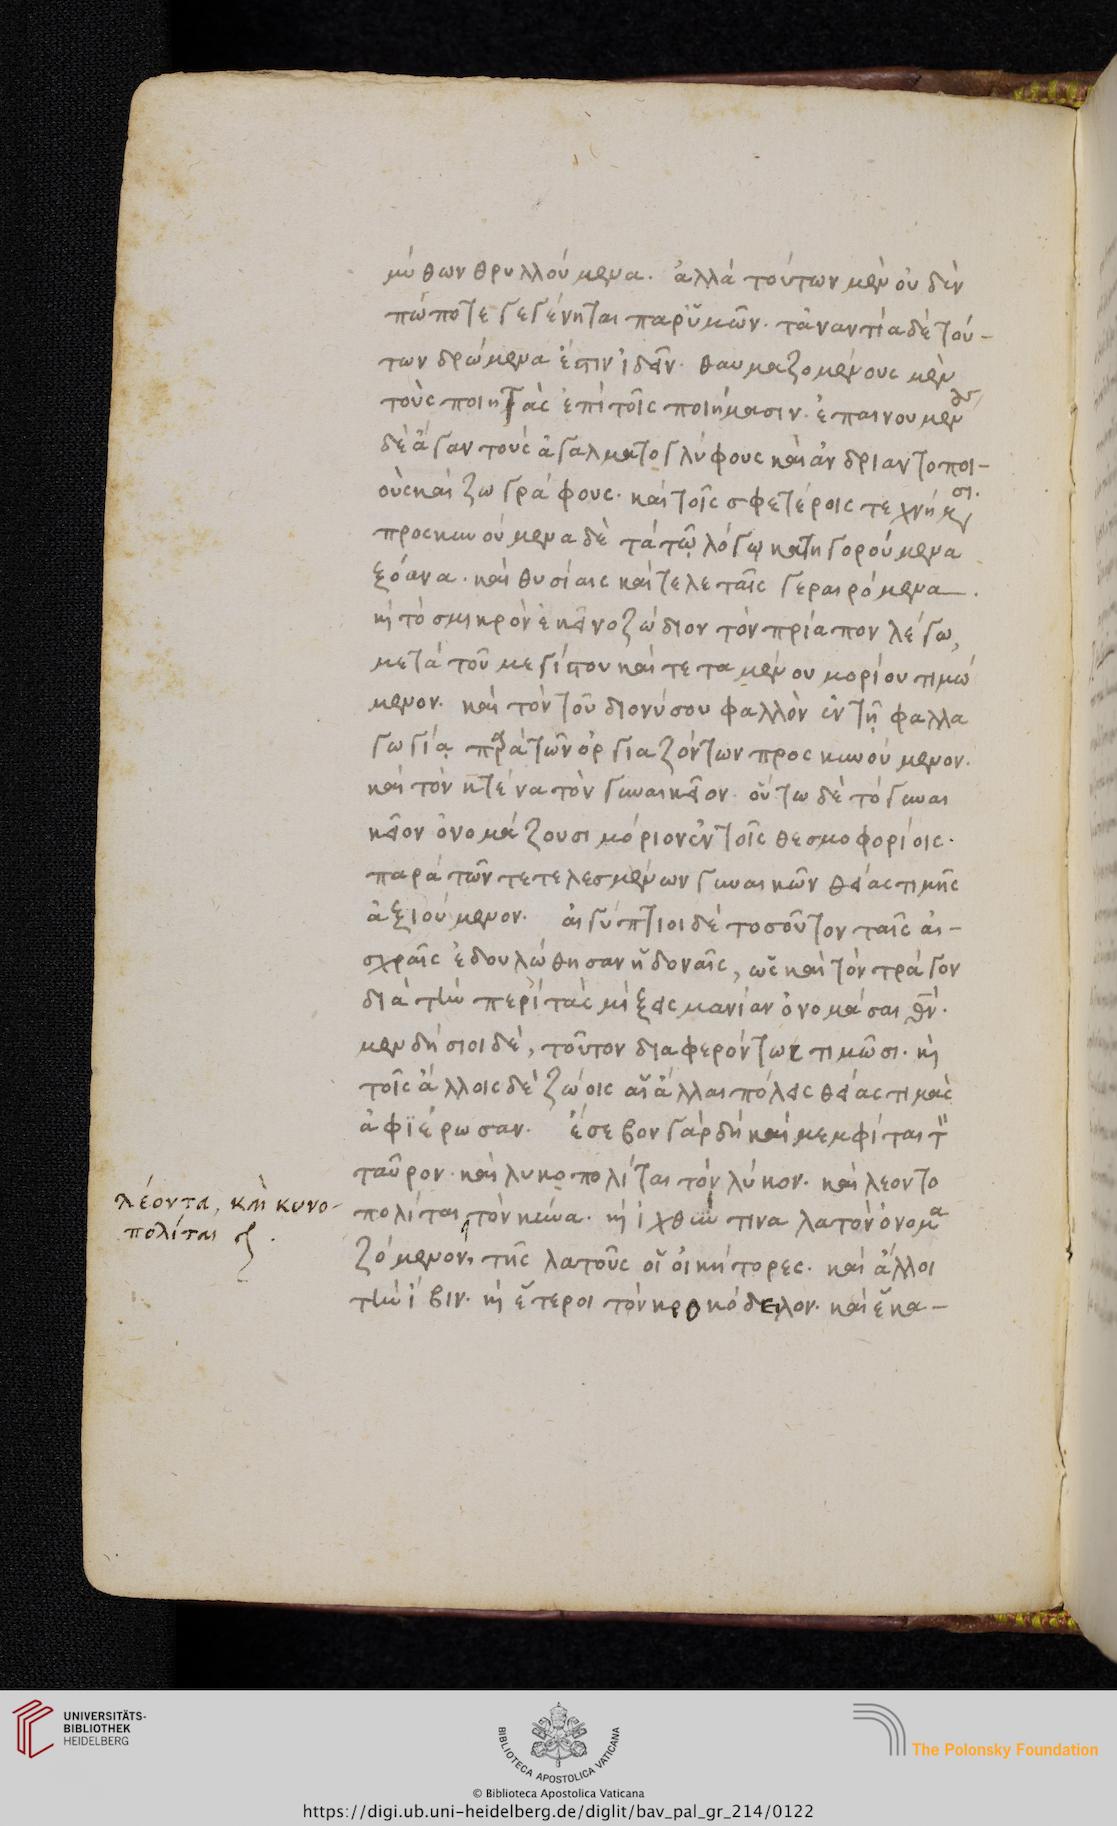 μύθων θρυλλούμενα. ἀλλὰ τούτων μὲν οὐδὲν
πώποτε γεγένηται παρ' ὑμῶν. τἀναντία δὲ τού-
των δρώμενα ἔστιν ἰδεῖν. θαυμαζομένους μὲν
τοὺς ποιητὰς ἐπὶ τοῖς ποιήμασιν. ἐπαινουμένους
δὲ ἄγαν τοὺς ἀγαλματογλύφους καὶ ἀνδριαντοποι-
οὺς καὶ ζωγράφους. καὶ τοῖς σφετέροις τεχνήμασι.
προσκυνούμενα δὲ τὰ τῷ λόγῳ κατηγορούμενα
ξόανα. καὶ θυσίαις καὶ τελεταῖς γεραιρόμενα.
κỳ τὸ σμικρὸν ἐκεῖνο ζώδιον τὸν πρίαπον λέγω,
μετὰ τοῦ μεγίστου καὶ τεταμένου μορίου τιμώ
μενον. καὶ τὸν τοῦ διονύσου φαλλὸν ἐν τῇ φαλλα
γωγίᾳ παρὰ τῶν ὀργιαζόντων προσκυνούμενον.
καὶ τὸν κτένα τὸν γυναικεῖον. οὕτω δὲ τὸ γυναι
κεῖον ὀνομάζουσι μόριον ἐν τοῖς θεσμοφορίοις.
παρὰ τῶν τετελεσμένων γυναικῶν θείας τιμῆς
ἀξιούμενον. αἰγύπτιοι δὲ τοσοῦτον ταῖς αἰ-
σχραῖς ἐδουλώθησαν ἡδοναῖς, ὡς καὶ τὸν τράγον
διὰ τὴν περὶ τὰς μίξεις μανίαν ὀνομάσαι θν.
μενδήσιοι δὲ, τοῦτον διαφερόντως τιμῶσι. κỳ
τοῖς ἄλλοις δὲ ζώοις αἱ ἄλλαι πόλεις θείας τιμὰς
ἀφιέρωσαν. ἔσεβον γὰρ δὴ καὶ μεμφῖται τὸν
ταῦρον. καὶ λυκοπολῖται τὸν λύκον. καὶ λεοντο
πολῖται τὸν κύνα. κỳ ἰχθύν τινα λατὸν ὀνομα
ζόμενον, τῆς λατοῦς οἱ οἰκήτορες. καὶ ἄλλοι
τὴν ἶβιν. κỳ ἕτεροι τὸν κροκόδειλον. καὶ ἕκα-
λέοντα, καὶ κυνο-
πολίται
UNIVERSITÄTS-
BIBLIOTHEK
HEIDELBERG
BIBLIOTECA APOSTOLICA VATICANA
The Polonsky Foundation
© Biblioteca Apostolica Vaticana
https://digi.ub.uni-heidelberg.de/diglit/bav_pal_gr_214/0122